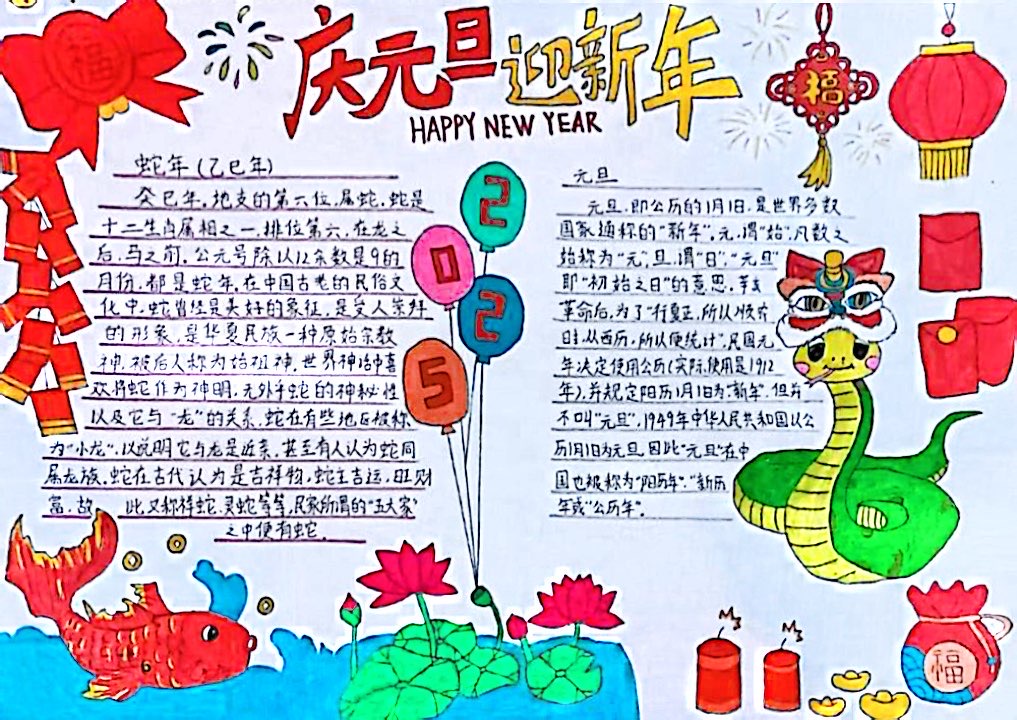 庆元旦迎新年
HAPPY NEW YEAR
福
福
蛇年(乙巳年)
癸巳年,地支的第六位,属蛇,蛇是
十二生肖属相之一,排位第六,在龙之
后,马之前。公元号除以12余数是9的
月份,都是蛇年,在中国古老的民俗文
化中,蛇曾经是美好的象征,是受人崇拜
的形象,是华夏民族一种原始宗教
神,被后人称为始祖神,世界神话中喜
欢将蛇作为神明,无外乎蛇的神秘性
以及它与“龙”的关系,蛇在有些地区被称
为“小龙”,以说明它与龙是近亲,甚至有人认为蛇同
属龙族,蛇在古代认为是吉祥物,蛇主吉运,旺财
富,故 此又称祥蛇,灵蛇等等,民家所谓的“五大家”
之中便有蛇。
2
0
2
5
元旦
元旦,即公历的1月1日,是世界多数
国家通称的“新年”。元,谓“始”,凡数之
始称为“元”,旦,谓“日”,“元旦”
即“初始之日”的意思。
革命后,为了“行夏正,所以
时,从西历,所以便统计”,民国元
年决定使用公历(实际使用是1912
年),并规定阳历1月1日为“新年”,但并
不叫“元旦”,1949年中华人民共和国以公
历1月1日为元旦,因此“元旦”在中
国也被称为“阳历年”,“新历
年或“公历年”。
福